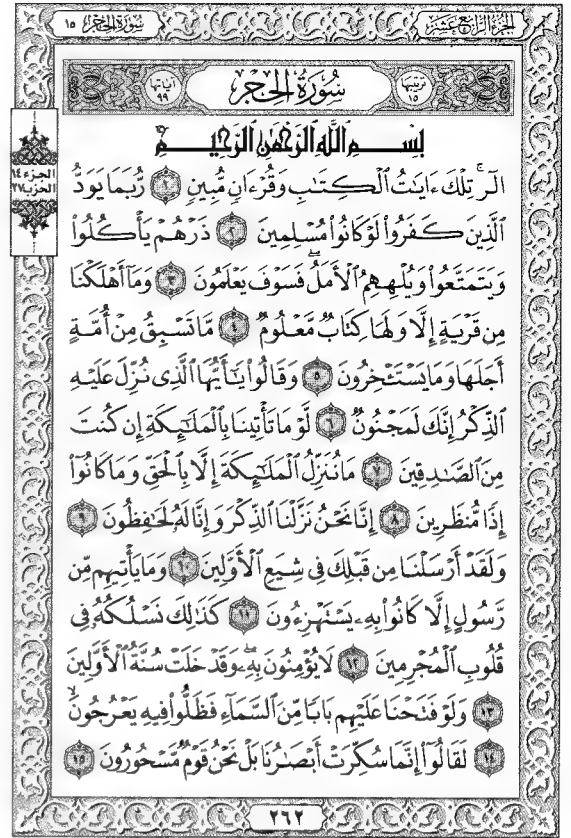 سُورَةُ الحِجرِ ١٥
الجزءُ الرَّابعَ عَشَر
ترتيبها ١٥
سُورَةُ الحِجْرِ
آياتها ٩٩
بِسْمِ اللَّهِ الرَّحْمَٰنِ الرَّحِيمِ
الجزء ١٤
الحزب ٢٧
الٓر ۚ تِلْكَ ءَايَٰتُ ٱلْكِتَٰبِ وَقُرْءَانٍ مُّبِينٍ ١ رُّبَمَا يَوَدُّ
ٱلَّذِينَ كَفَرُوا۟ لَوْ كَانُوا۟ مُسْلِمِينَ ٢ ذَرْهُمْ يَأْكُلُوا۟
وَيَتَمَتَّعُوا۟ وَيُلْهِهِمُ ٱلْأَمَلُ ۖ فَسَوْفَ يَعْلَمُونَ ٣ وَمَآ أَهْلَكْنَا
مِن قَرْيَةٍ إِلَّا وَلَهَا كِتَابٌ مَّعْلُومٌ ٤ مَّا تَسْبِقُ مِنْ أُمَّةٍ
أَجَلَهَا وَمَا يَسْتَـْٔخِرُونَ ٥ وَقَالُوا۟ يَٰٓأَيُّهَا ٱلَّذِى نُزِّلَ عَلَيْهِ
ٱلذِّكْرُ إِنَّكَ لَمَجْنُونٌ ٦ لَّوْ مَا تَأْتِينَا بِٱلْمَلَٰٓئِكَةِ إِن كُنتَ
مِنَ ٱلصَّٰدِقِينَ ٧ مَا نُنَزِّلُ ٱلْمَلَٰٓئِكَةَ إِلَّا بِٱلْحَقِّ وَمَا كَانُوٓا۟
إِذًا مُّنظَرِينَ ٨ إِنَّا نَحْنُ نَزَّلْنَا ٱلذِّكْرَ وَإِنَّا لَهُۥ لَحَٰفِظُونَ ٩
وَلَقَدْ أَرْسَلْنَا مِن قَبْلِكَ فِى شِيَعِ ٱلْأَوَّلِينَ ١٠ وَمَا يَأْتِيهِم مِّن
رَّسُولٍ إِلَّا كَانُوا۟ بِهِۦ يَسْتَهْزِءُونَ ١١ كَذَٰلِكَ نَسْلُكُهُۥ فِى
قُلُوبِ ٱلْمُجْرِمِينَ ١٢ لَا يُؤْمِنُونَ بِهِۦ ۖ وَقَدْ خَلَتْ سُنَّةُ ٱلْأَوَّلِينَ
١٣ وَلَوْ فَتَحْنَا عَلَيْهِم بَابًا مِّنَ ٱلسَّمَآءِ فَظَلُّوا۟ فِيهِ يَعْرُجُونَ
١٤ لَقَالُوٓا۟ إِنَّمَا سُكِّرَتْ أَبْصَٰرُنَا بَلْ نَحْنُ قَوْمٌ مَّسْحُورُونَ ١٥
٢٦٢